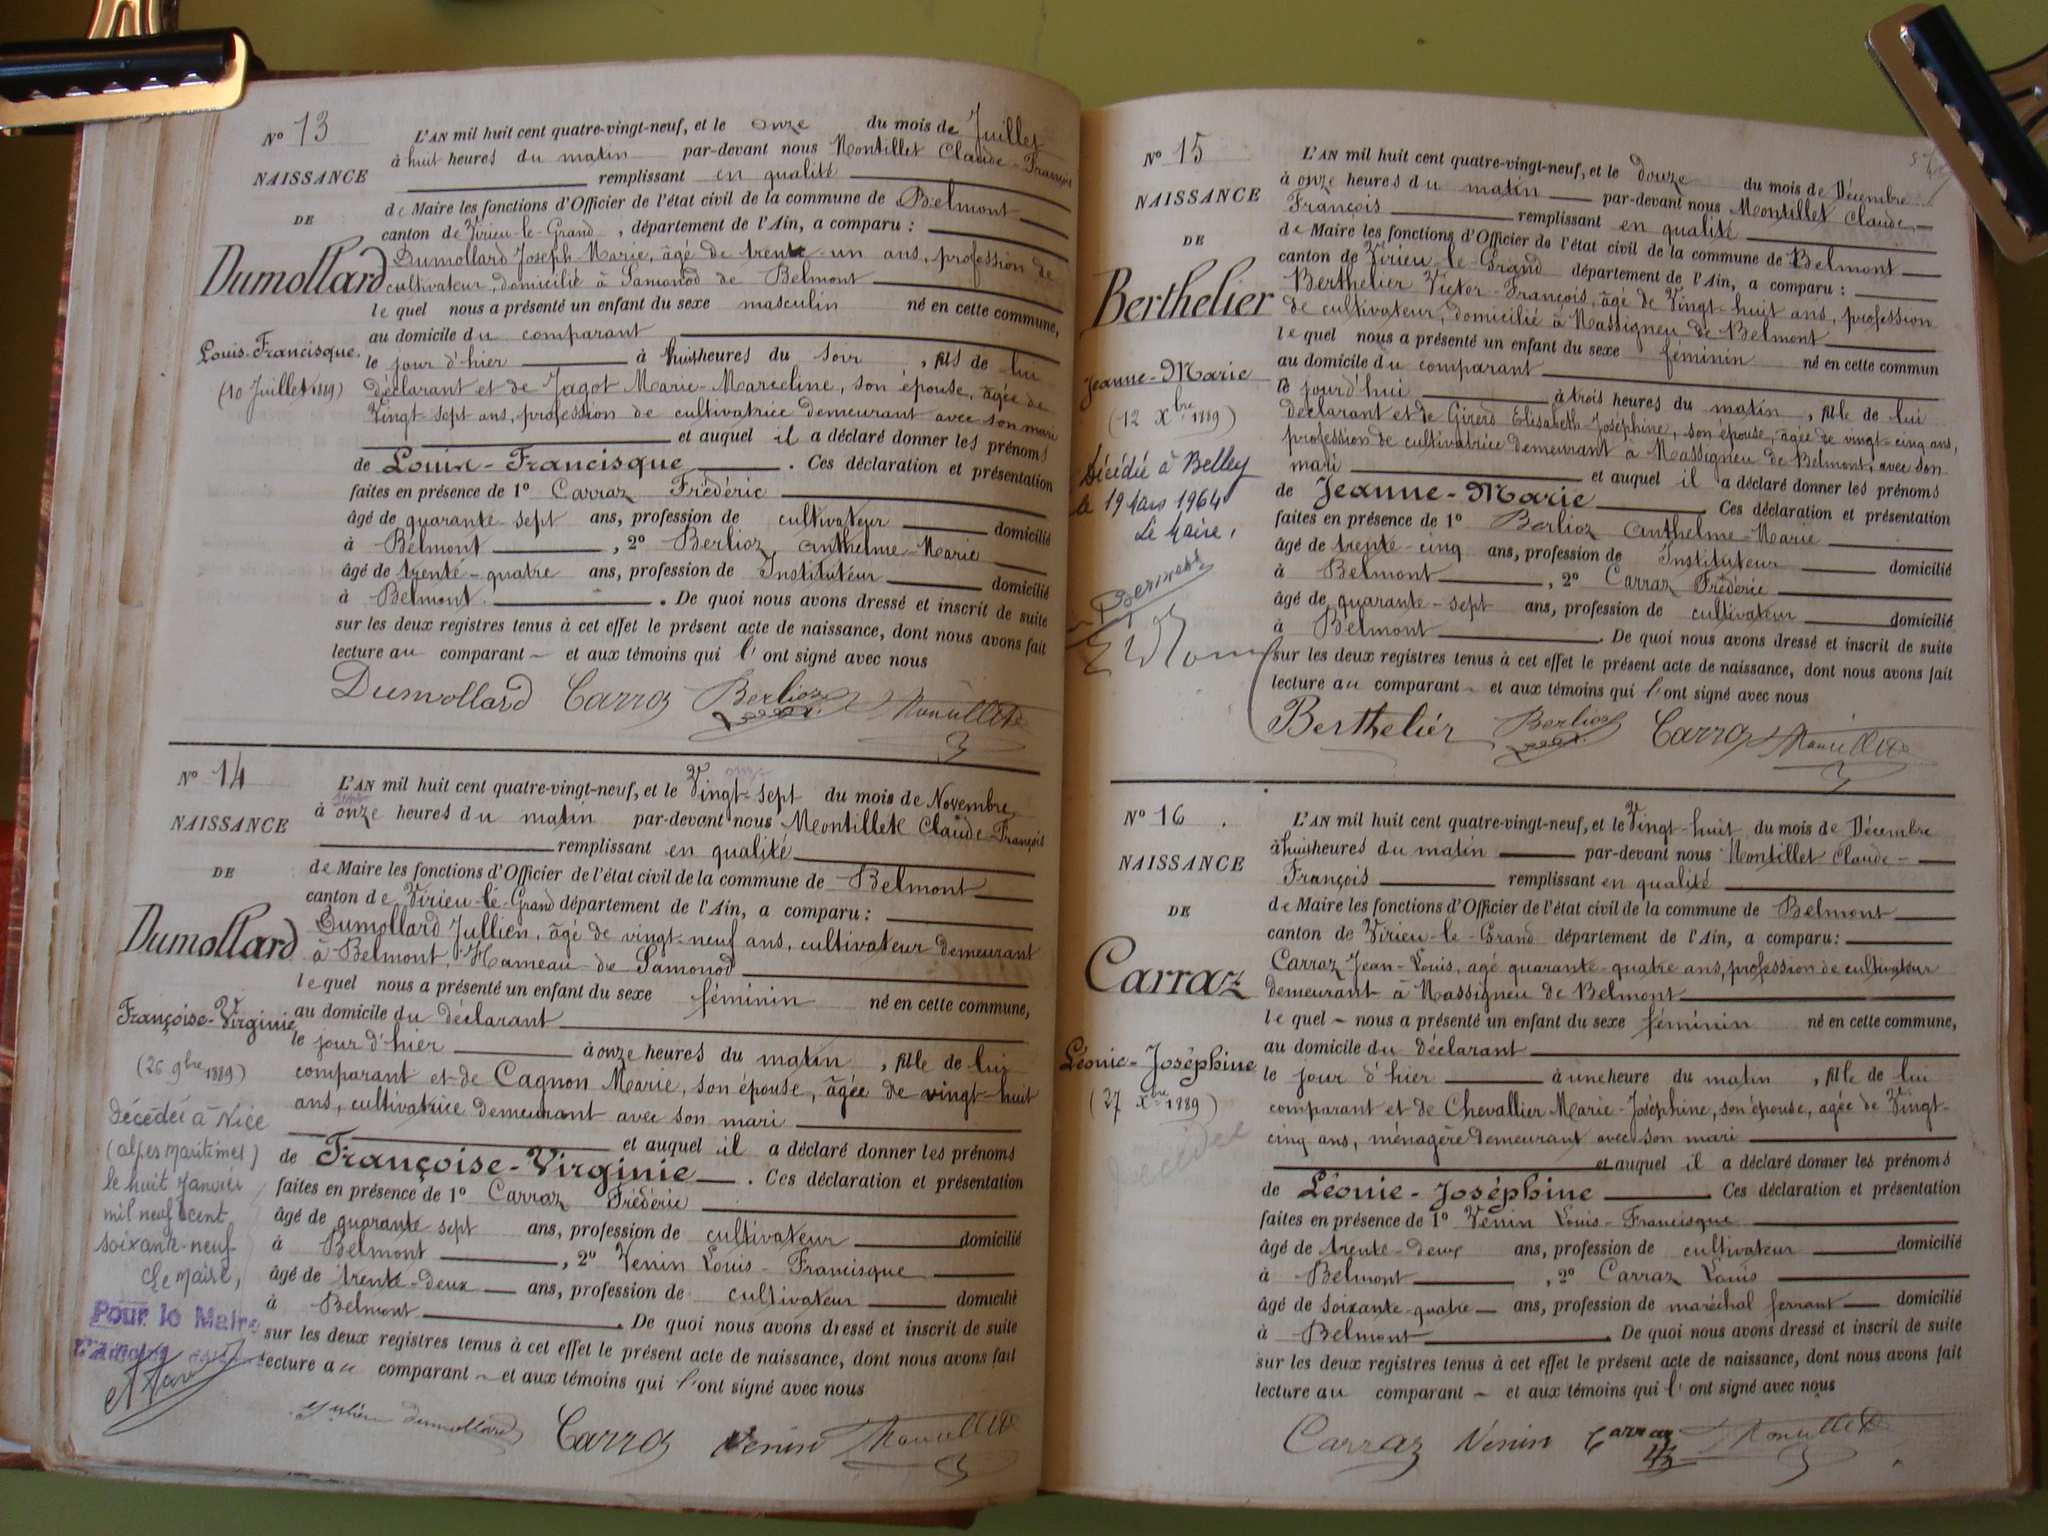 N° 13
NAISSANCE
DE
Dumollard
Louis-Francisque.
(10 Juillet 1889)
L'AN mil huit cent quatre-vingt-neuf, et le onze du mois de Juillet
à huit heures du matin par-devant nous Montillet Claude-François
remplissant en qualité
de Maire les fonctions d'Officier de l'état civil de la commune de Belmont
canton de Virieu-le-Grand, département de l'Ain, a comparu :
Dumollard Joseph Marie, âgé de trente-un ans, profession de
cultivateur, domicilié à Samonod de Belmont
lequel nous a présenté un enfant du sexe masculin né en cette commune,
au domicile du comparant
le jour d'hier à huit heures du soir, fils de lui
déclarant et de Jagot Marie-Marceline, son épouse, âgée de
Vingt-sept ans, profession de cultivatrice demeurant avec son mari
et auquel il a déclaré donner les prénoms
de Louis-Francisque. Ces déclaration et présentation
faites en présence de 1° Carraz Frédéric
âgé de quarante-sept ans, profession de cultivateur domicilié
à Belmont, 2° Berlioz Anthelme-Marie
âgé de trente-quatre ans, profession de Instituteur domicilié
à Belmont. De quoi nous avons dressé et inscrit de suite
sur les deux registres tenus à cet effet le présent acte de naissance, dont nous avons fait
lecture au comparant et aux témoins qui l'ont signé avec nous
Dumollard Carraz Berlioz Montillet
N° 14
NAISSANCE
DE
Dumollard
Françoise-Virginie
(26 9bre 1889)
Décédée à Nice
(alpes maritimes)
le huit janvier
mil neuf cent
soixante-neuf
Le Maire,
Pour le Maire
L'AN mil huit cent quatre-vingt-neuf, et le Vingt-sept du mois de Novembre
à onze heures du matin par-devant nous Montillet Claude-François
remplissant en qualité
de Maire les fonctions d'Officier de l'état civil de la commune de Belmont
canton de Virieu-le-Grand département de l'Ain, a comparu :
Dumollard Jullien, âgé de vingt-neuf ans, cultivateur demeurant
à Belmont, Hameau de Samonod
lequel nous a présenté un enfant du sexe féminin né en cette commune,
au domicile du déclarant
le jour d'hier à onze heures du matin, fille de lui
comparant et de Cagnon Marie, son épouse, âgée de vingt-huit
ans, cultivatrice demeurant avec son mari
et auquel il a déclaré donner les prénoms
de Françoise-Virginie. Ces déclaration et présentation
faites en présence de 1° Carraz Frédéric
âgé de quarante sept ans, profession de cultivateur domicilié
à Belmont, 2° Venin Louis-Francisque
âgé de trente-deux ans, profession de cultivateur domicilié
à Belmont. De quoi nous avons dressé et inscrit de suite
sur les deux registres tenus à cet effet le présent acte de naissance, dont nous avons fait
lecture au comparant et aux témoins qui l'ont signé avec nous
Julien Dumollard Carraz Venin Montillet
N° 15
NAISSANCE
DE
Berthelier
Jeanne-Marie
(12 Xbre 1889)
Décédée à Belley
le 19 Mars 1964
Le Maire,
L'AN mil huit cent quatre-vingt-neuf, et le douze du mois de Décembre
à onze heures du matin par-devant nous Montillet Claude-
François remplissant en qualité
de Maire les fonctions d'Officier de l'état civil de la commune de Belmont
canton de Virieu-le-Grand département de l'Ain, a comparu :
Berthelier Victor-François, âgé de Vingt-huit ans, profession
de cultivateur, domicilié à Massigneu de Belmont
lequel nous a présenté un enfant du sexe féminin né en cette commun
au domicile du comparant
le jourd'hui à trois heures du matin, fille de lui
déclarant et de Girerd Elisabeth-Joséphine, son épouse, âgée de vingt-cinq ans,
profession de cultivatrice demeurant à Massigneu de Belmont, avec son
mari et auquel il a déclaré donner les prénoms
de Jeanne-Marie. Ces déclaration et présentation
faites en présence de 1° Berlioz Anthelme-Marie
âgé de trente-cinq ans, profession de Instituteur domicilié
à Belmont, 2° Carraz Frédéric
âgé de quarante-sept ans, profession de cultivateur domicilié
à Belmont. De quoi nous avons dressé et inscrit de suite
sur les deux registres tenus à cet effet le présent acte de naissance, dont nous avons fait
lecture au comparant et aux témoins qui l'ont signé avec nous
Berthelier Berlioz Carraz Montillet
N° 16
NAISSANCE
DE
Carraz
Léonie-Joséphine
(27 Xbre 1889)
Décédée
L'AN mil huit cent quatre-vingt-neuf, et le Vingt-huit du mois de Décembre
à huit heures du matin par-devant nous Montillet Claude-
François remplissant en qualité
de Maire les fonctions d'Officier de l'état civil de la commune de Belmont
canton de Virieu-le-Grand département de l'Ain, a comparu :
Carraz Jean-Louis, agé quarante-quatre ans, profession de cultivateur
demeurant à Massigneu de Belmont
lequel nous a présenté un enfant du sexe féminin né en cette commune,
au domicile du déclarant
le jour d'hier à une heure du matin, fille de lui
comparant et de Chevallier Marie-Joséphine, son épouse, agée de Vingt-
cinq ans, ménagère demeurant avec son mari
et auquel il a déclaré donner les prénoms
de Léonie-Joséphine Ces déclaration et présentation
faites en présence de 1° Venin Louis-Francisque
âgé de trente-deux ans, profession de cultivateur domicilié
à Belmont, 2° Carraz Louis
âgé de soixante-quatre ans, profession de maréchal ferrant domicilié
à Belmont. De quoi nous avons dressé et inscrit de suite
sur les deux registres tenus à cet effet le présent acte de naissance, dont nous avons fait
lecture au comparant et aux témoins qui l'ont signé avec nous
Carraz Venin Carraz Montillet